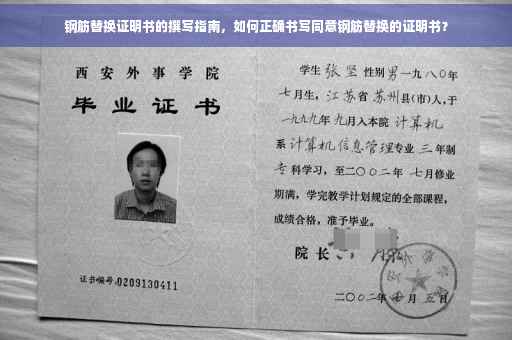 钢筋替换证明书的撰写指南，如何正确书写同意钢筋替换的证明书？
西安外事学院
毕业证书
证书编号：0209130411
学生张坚性别男一九八〇年
七月生，江苏省苏州县(市)人，于
一九九九年九月入本院计算机
系计算机信息管理专业三年制
专科学习，至二〇〇二年七月修业
期满，学完教学计划规定的全部课程，
成绩合格，准予毕业。
院长
二〇〇二年七月五日